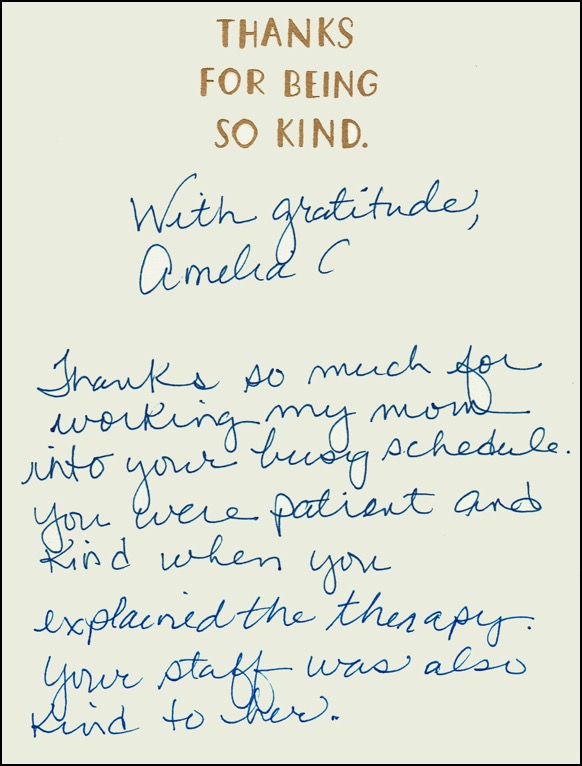 THANKS
FOR BEING
SO KIND.
With gratitude,
Amelia C
Thanks so much for
working my mom
into your busy schedule.
You were patient and
kind when you
explained the therapy.
Your staff was also
kind to her.